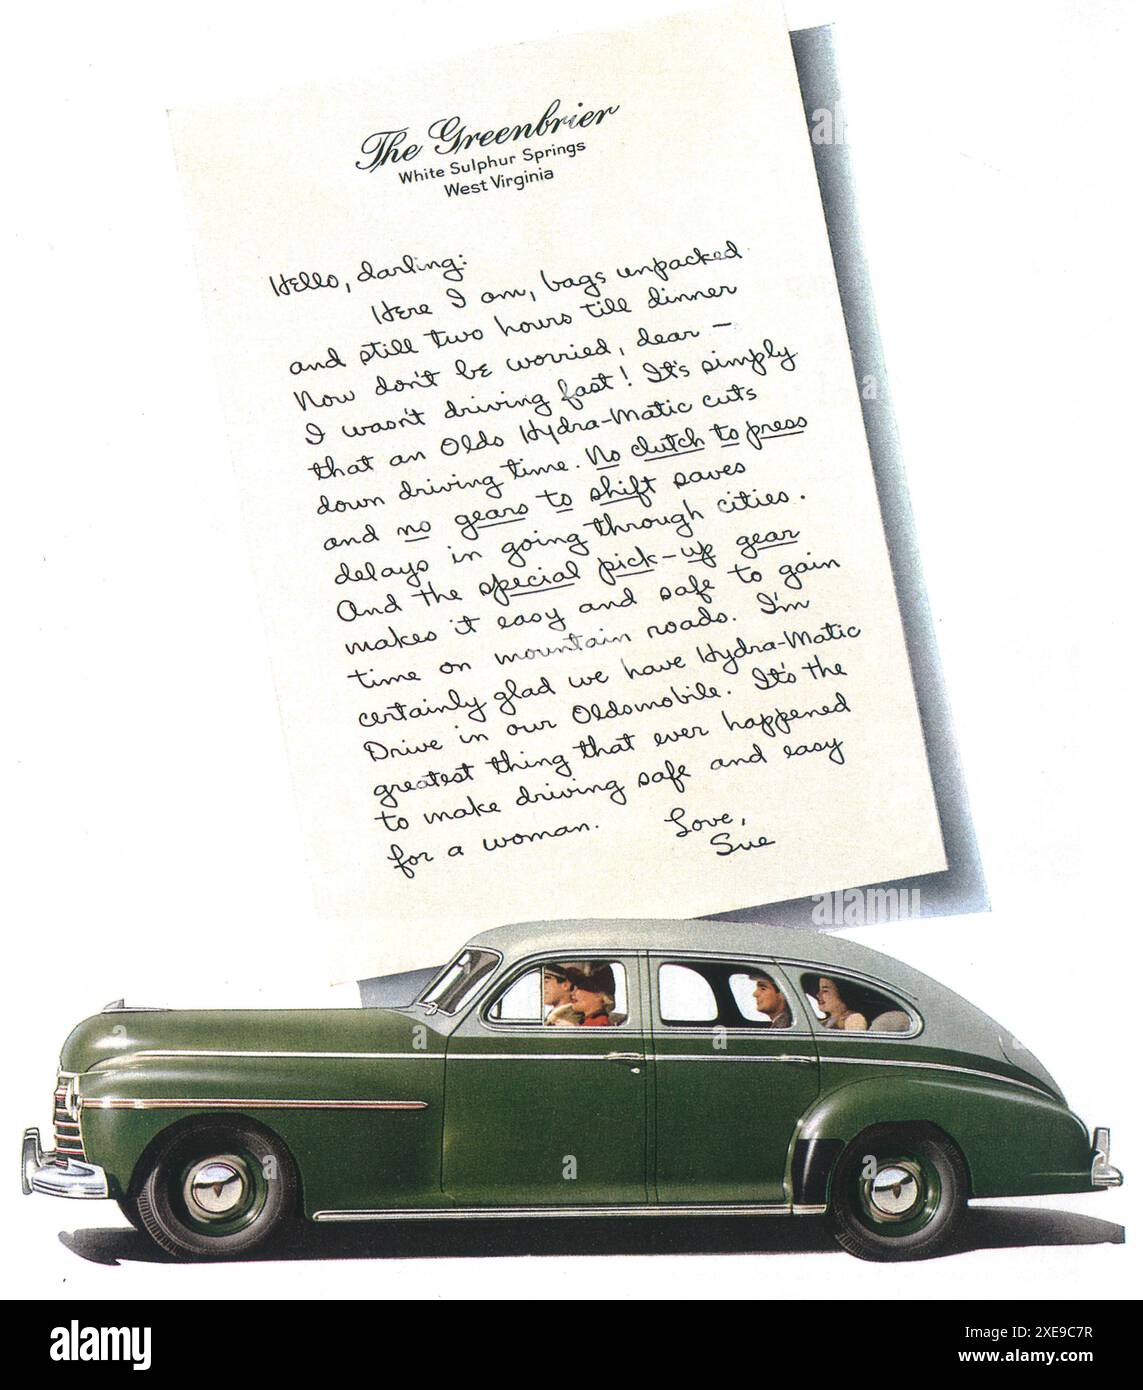 The Greenbrier
White Sulphur Springs
West Virginia
Hello, darling:
Here I am, bags unpacked
and still two hours till dinner
Now don't be worried, dear —
I wasn't driving fast! It's simply
that an Olds Hydra-Matic cuts
down driving time. No clutch to press
and no gears to shift saves
delays in going through cities.
And the special pick-up gear
makes it easy and safe to gain
time on mountain roads. I'm
certainly glad we have Hydra-Matic
Drive in our Oldsmobile. It's the
greatest thing that ever happened
to make driving safe and easy
for a woman.
Love,
Sue
alamy
a
a
a
a
a
a
alamy
Image ID: 2XE9C7R
www.alamy.com